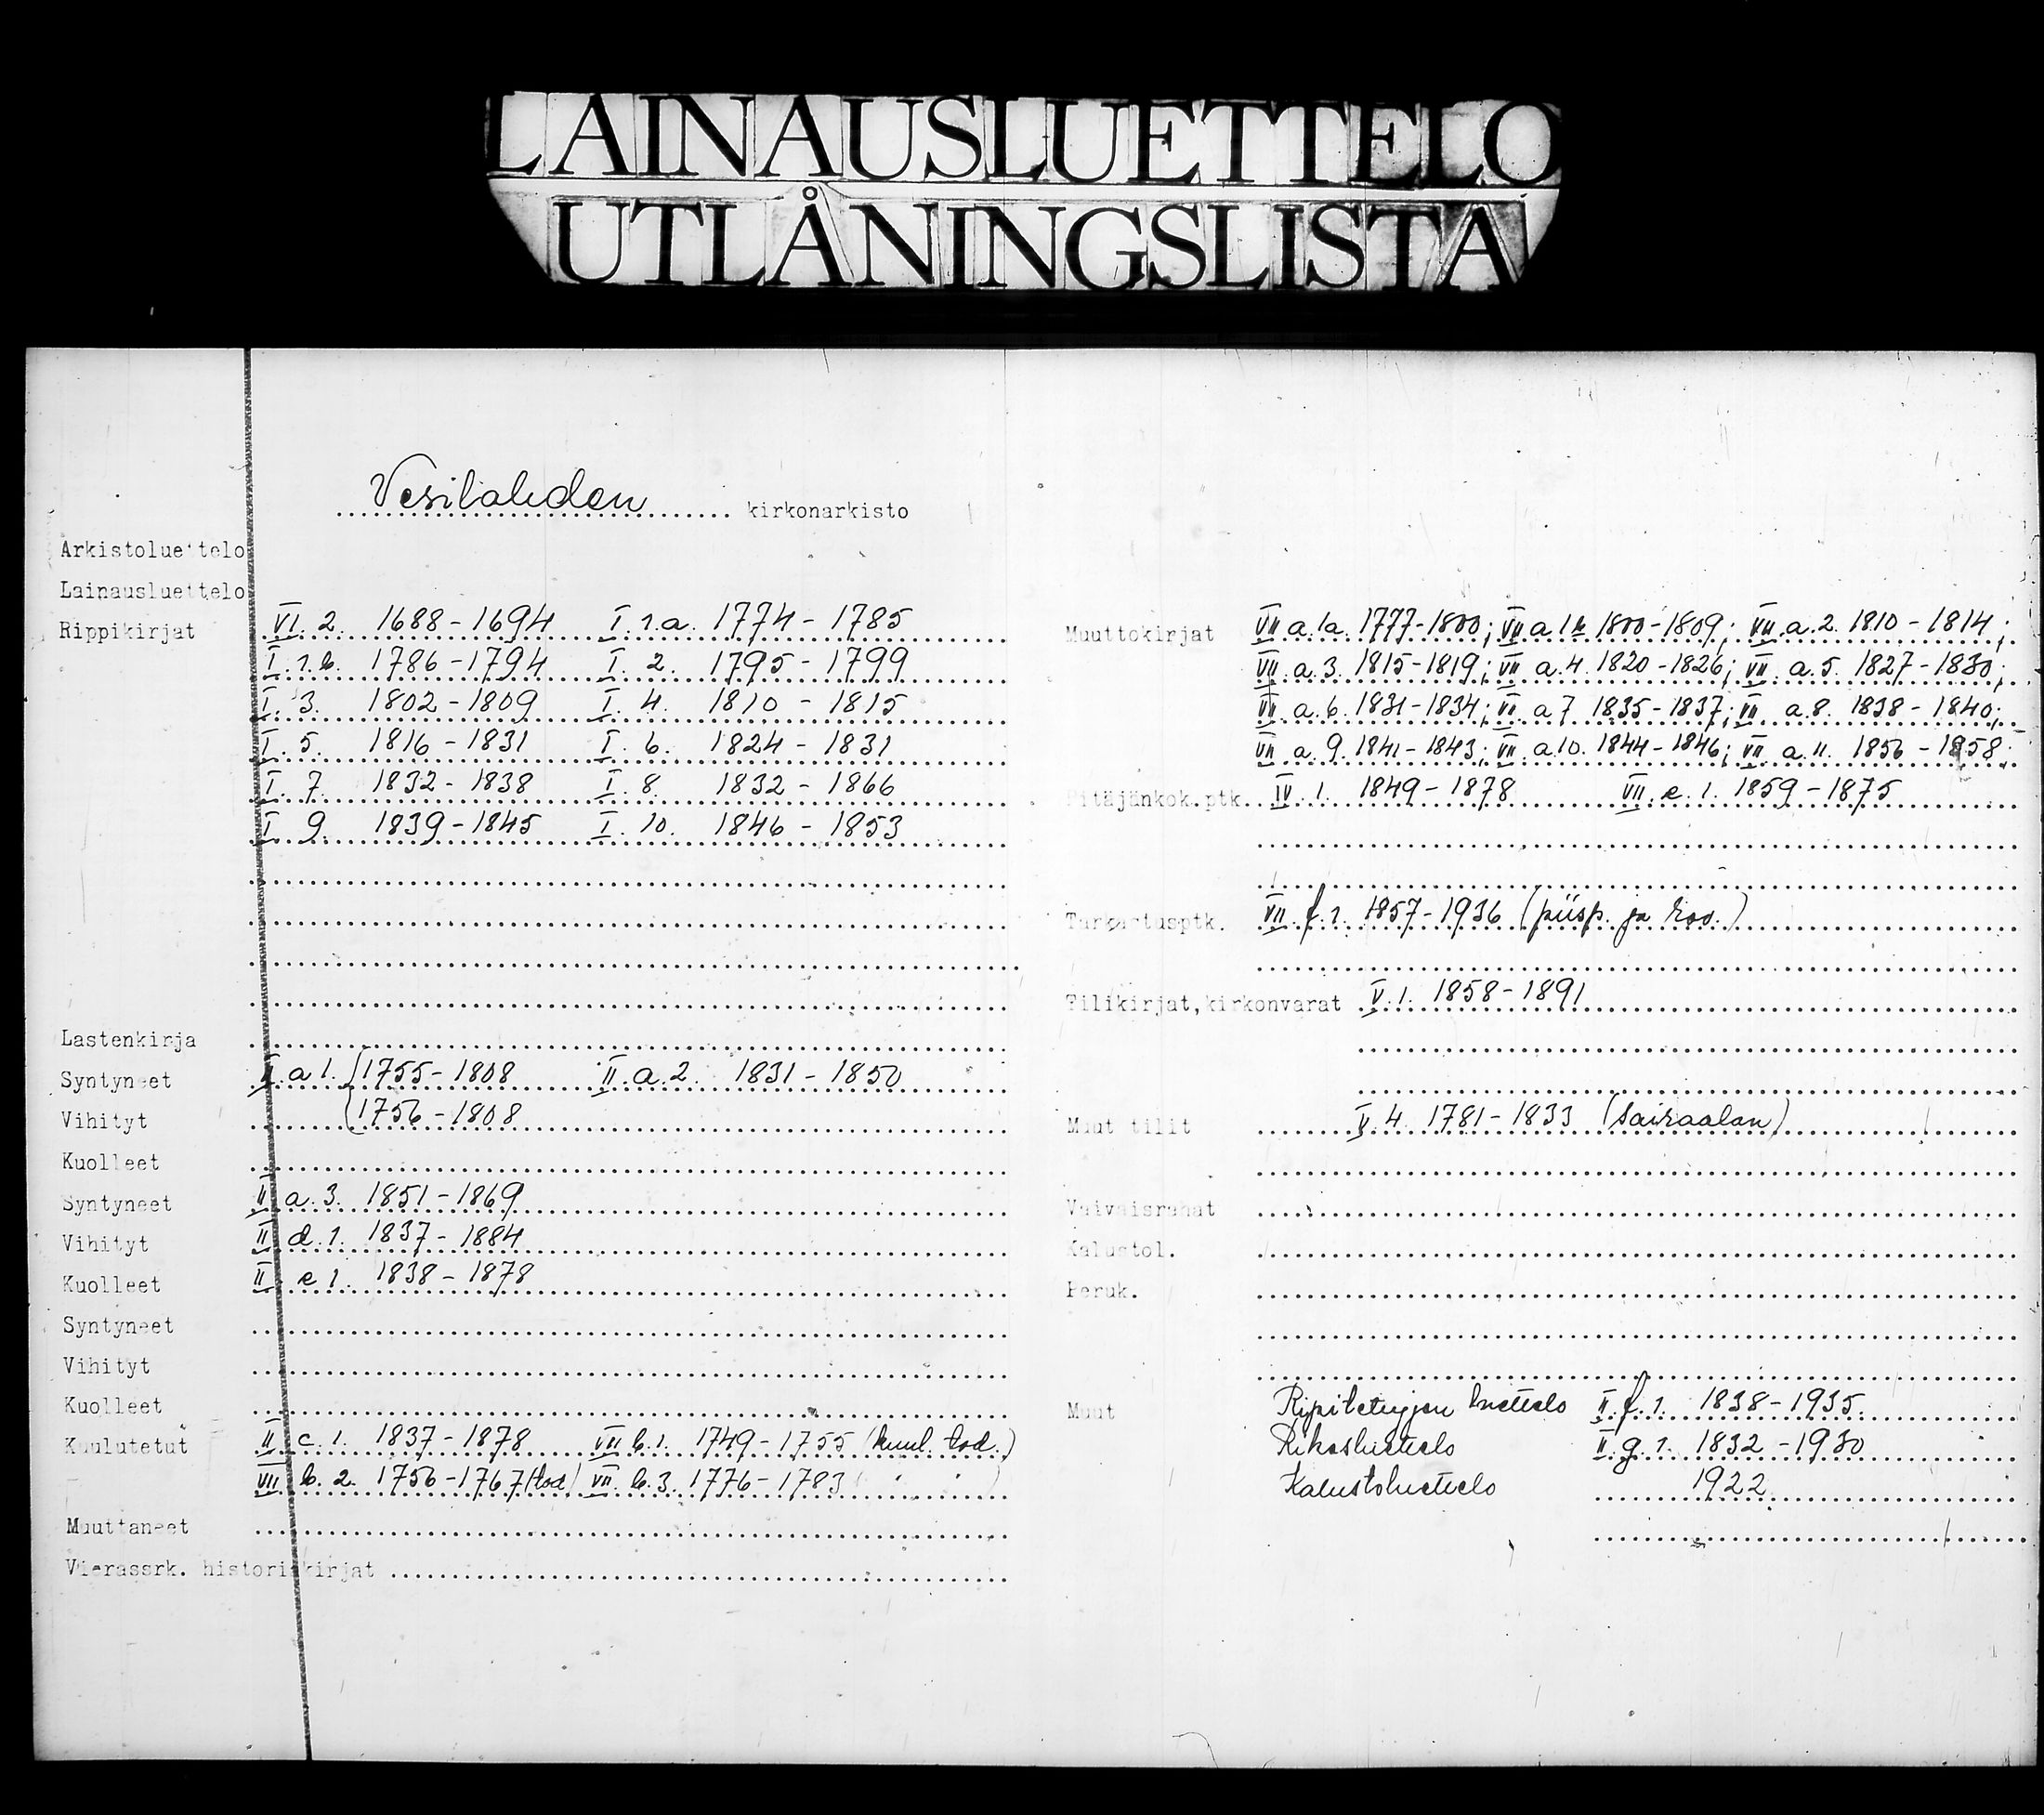 LAINAUSLUETTELO
UTLÅNINGSLISTA
Vesilahden kirkonarkisto
Arkistoluettelo
Lainausluettelo
Rippikirjat VI. 2. 1688-1694 I. 1.a. 1774-1785
I. 1.b. 1786-1794 I. 2. 1795-1799
I. 3. 1802-1809 I. 4. 1810-1815
I. 5. 1816-1831 I. 6. 1824-1831
I. 7. 1832-1838 I. 8. 1832-1866
I. 9. 1839-1845 I. 10. 1846-1853
Lastenkirja
Syntyneet II. a 1. 1755-1808 II. a. 2. 1831-1850
Vihityt 1756-1808
Kuolleet
Syntyneet II a. 3. 1851-1869
Vihityt II d. 1. 1837-1884
Kuolleet II e 1. 1838-1878
Syntyneet
Vihityt
Kuolleet
Kuulutetut II. c. 1. 1837-1878 VII b. 1. 1749-1755 (kuul. tod.)
VII. b. 2. 1756-1767 (tod) VII. b. 3. 1776-1783 " "
Muuttaneet
Vierassrk. historiakirjat
Muuttokirjat VII a. 1a. 1777-1800; VII a 1b 1800-1809; VII. a. 2. 1810-1814;
VII. a. 3. 1815-1819; VII a. 4. 1820-1826; VII. a. 5. 1827-1830;
VII. a. 6. 1831-1834; VII. a 7 1835-1837; VII. a. 8. 1838-1840;
VII a. 9. 1841-1843; VII. a 10. 1844-1846; VII a. 11. 1856-1858.
Pitäjänkok.ptk. IV. 1. 1849-1878 VII. e. 1. 1859-1875
Tarkastusptk. VII. f. 1. 1857-1936 (piisp. ja rov.)
Tilikirjat, kirkonvarat V. 1. 1858-1891
Muut tilit V. 4. 1781-1833 (sairaalan)
Vaivaisrahat
Kalustol.
Peruk.
Muut Ripiletujen luettelo II. f. 1. 1838-1935.
Rikosluettelo II. g. 1. 1832-1930
Kalustoluettelo 1922